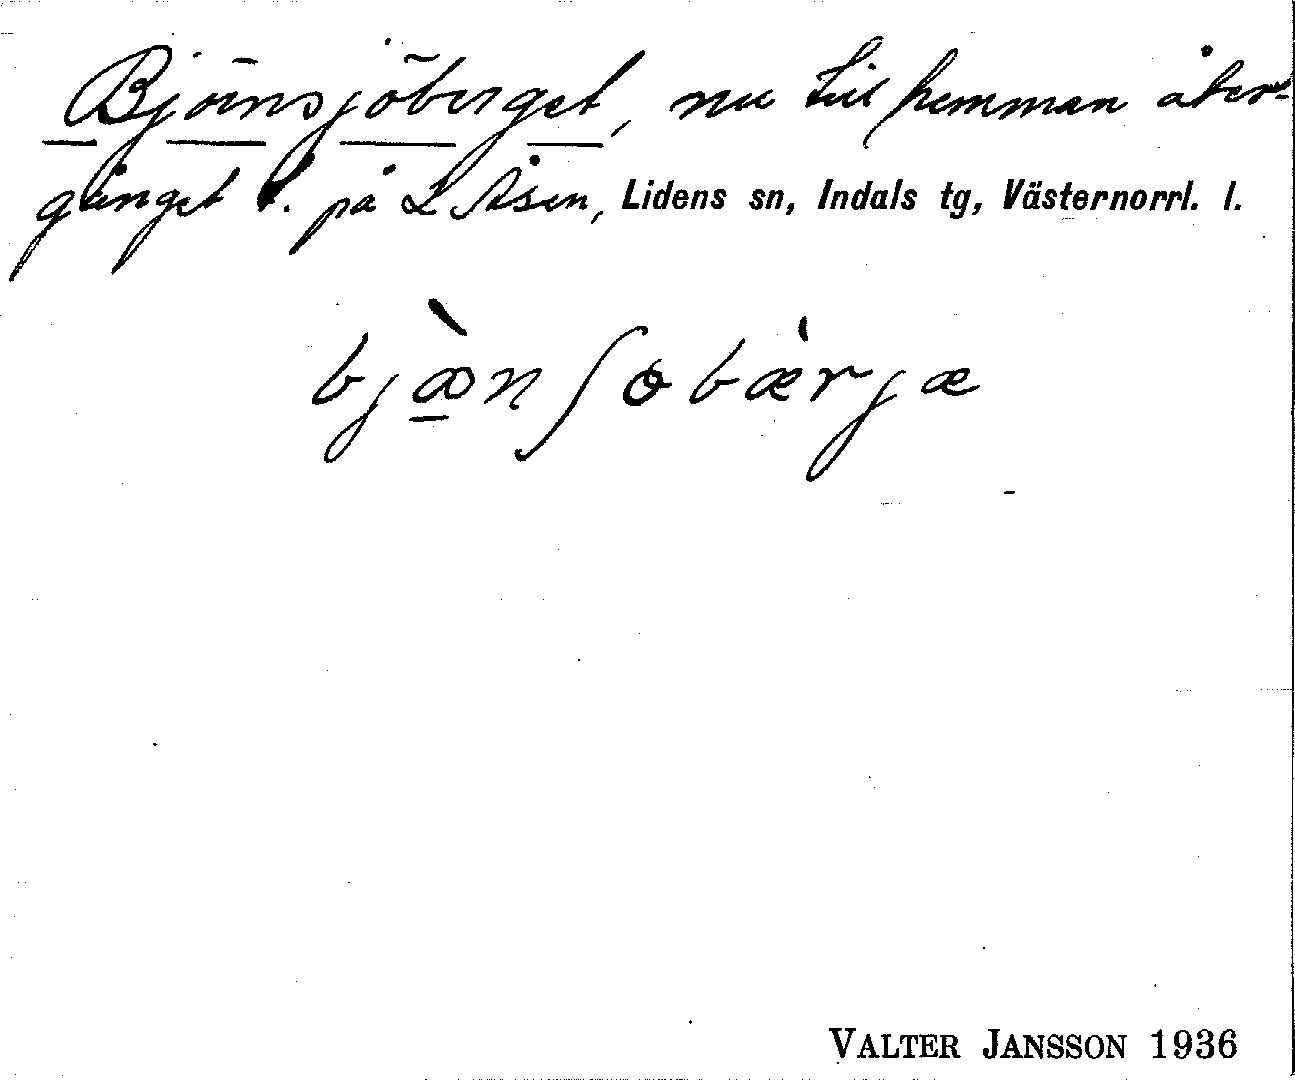 Björnsjöberget, nu till hemman åter-
gånget t. på L Åsen, Lidens sn, Indals tg, Västernorrl. l.
bjæ̀nʃobæ̀rjæ
VALTER JANSSON 1936